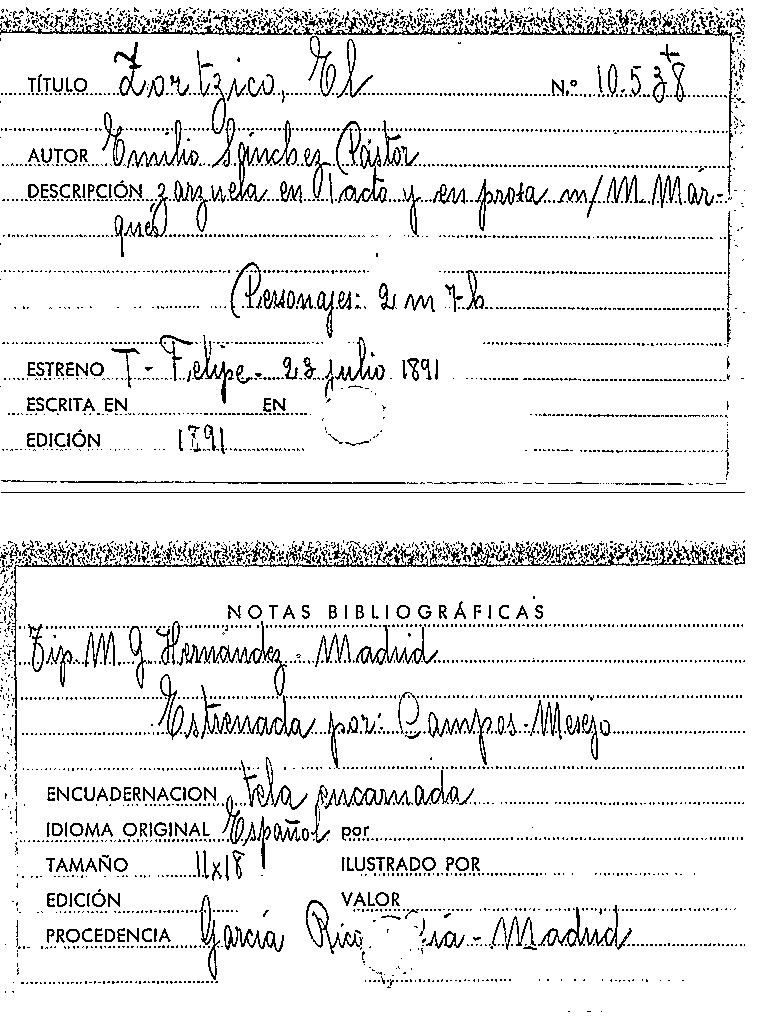 TÍTULO Zortzico, El N.º 10.538
+
AUTOR Emilio Sánchez Pastor
DESCRIPCIÓN zarzuela en 1 acto y en prosa m/ M. Mar-
qués
(Personajes: 2 m 7 h
ESTRENO T - Felipe - 23 julio 1891
ESCRITA EN EN
EDICIÓN 1891
NOTAS BIBLIOGRÁFICAS
Tip M G Hernández - Madrid
Estrenada por: Campos - Mesejo
ENCUADERNACION tela encarnada
IDIOMA ORIGINAL Español por
TAMAÑO 11x18 ILUSTRADO POR
EDICIÓN VALOR
PROCEDENCIA García Rico ía - Madrid